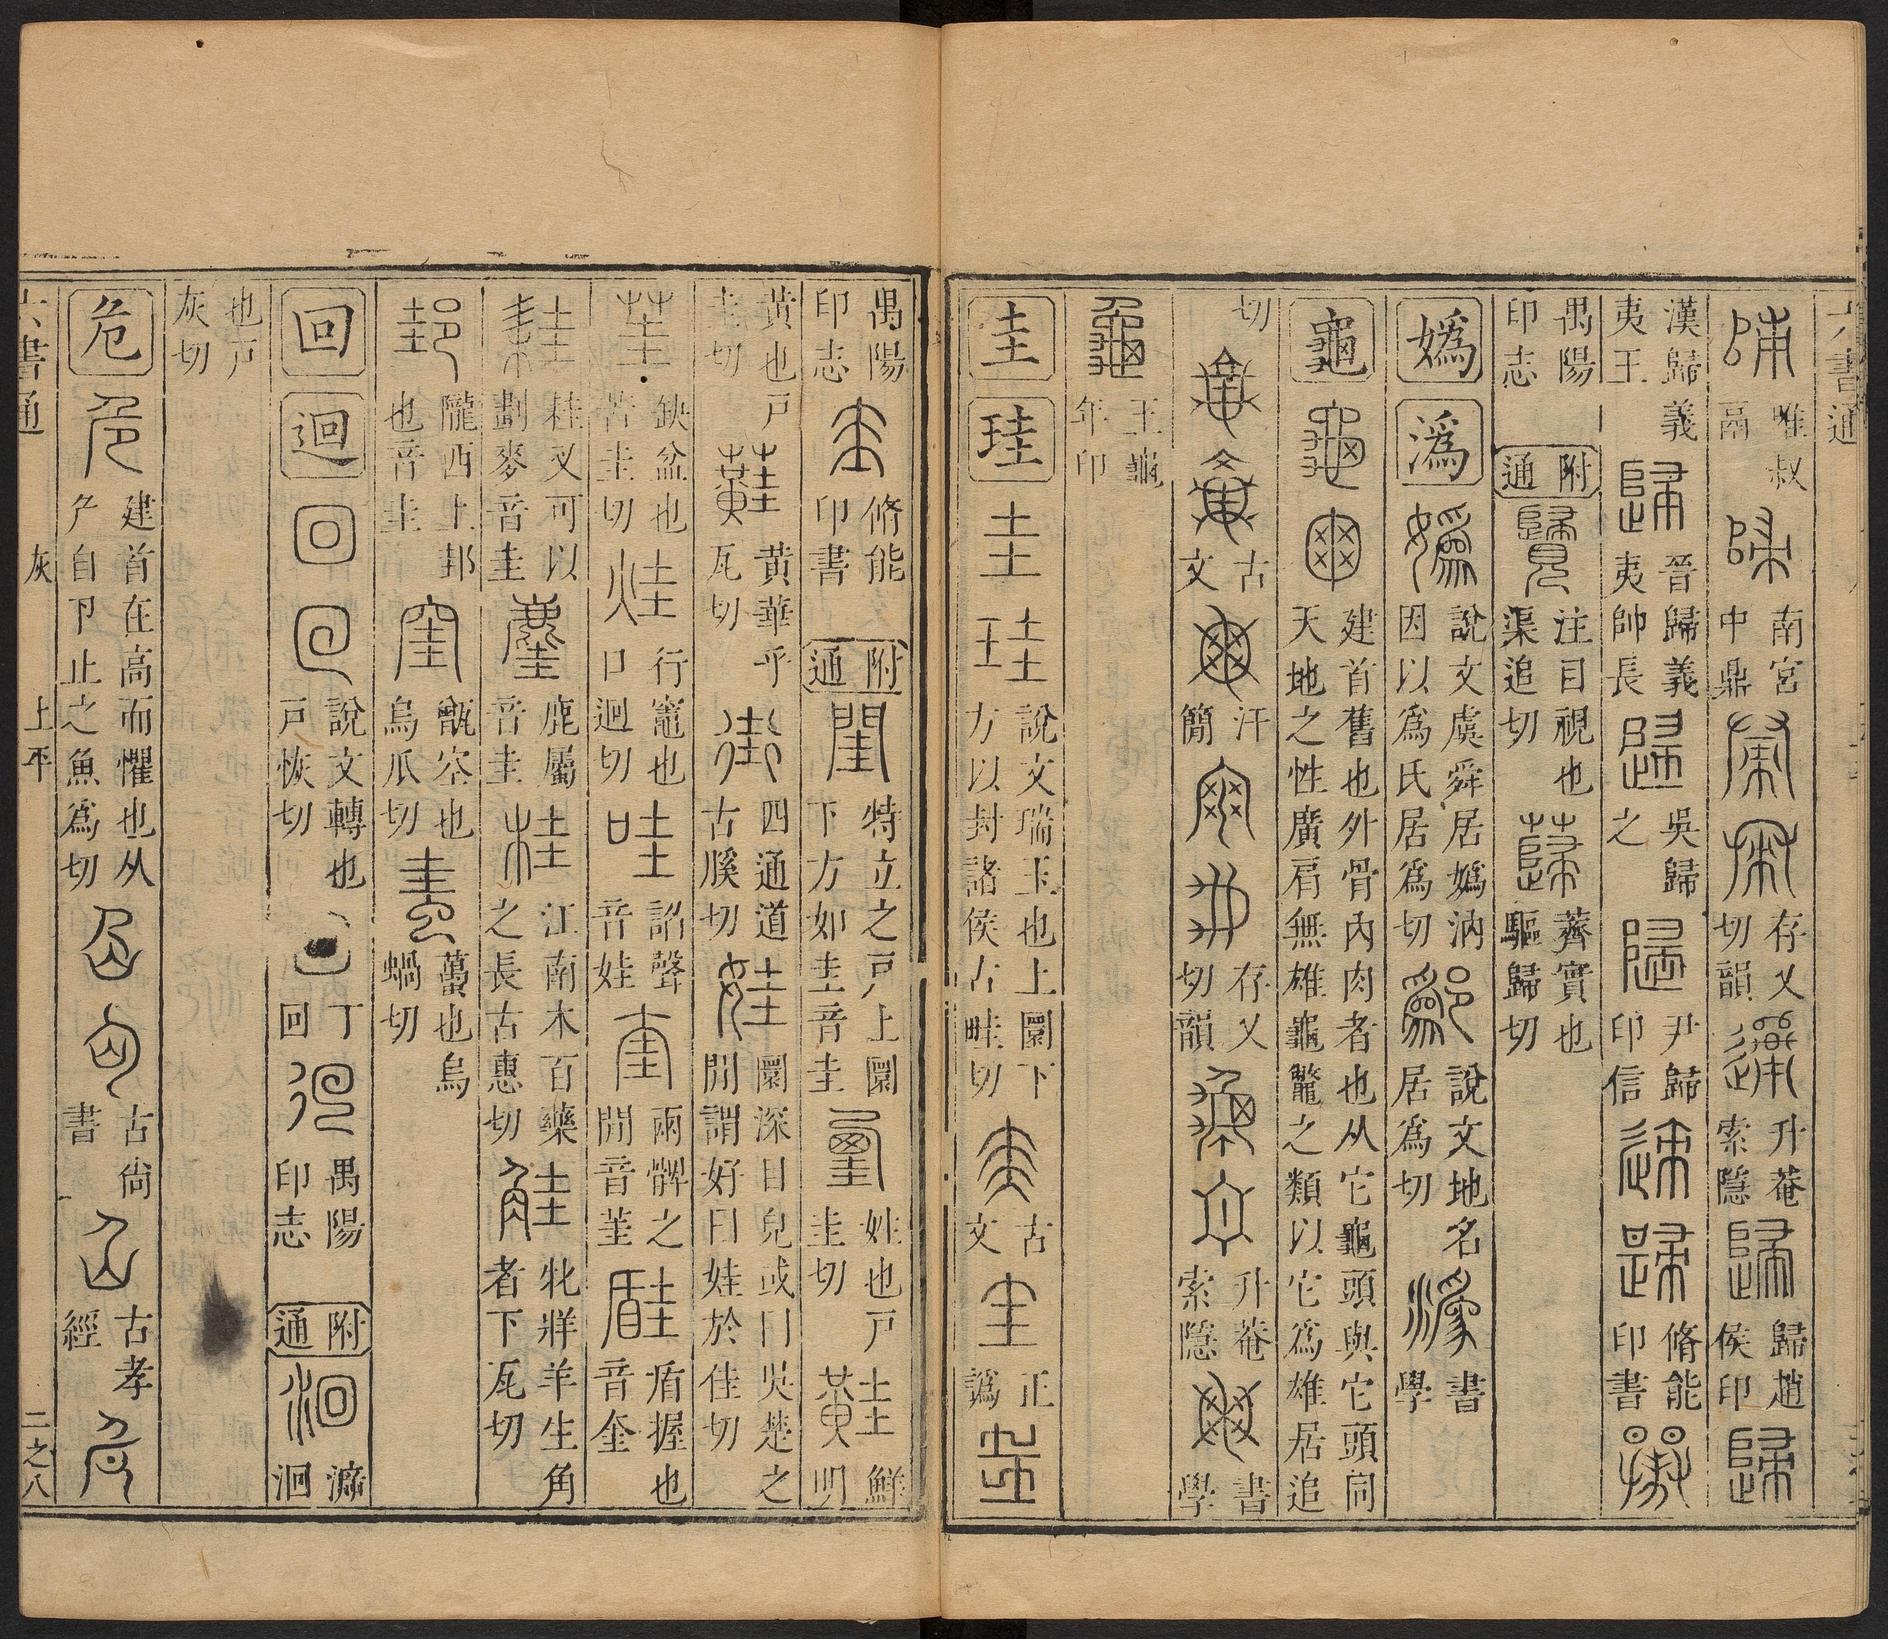 六書通
唯叔鬲 南宮中鼎 存乂切韻 升菴索隱 歸趙侯印
漢歸義夷王 晉歸義夷帥長 吳歸之 尹歸印信 脩能印書
禺陽印志 附通 注目視也渠追切 薺實也驅歸切
嬀 潙 說文虞舜居嬀汭因以爲氏居爲切 說文地名居爲切 書學
龜 建首舊也外骨內肉者也从它龜頭與它頭同天地之性廣肩無雄龜鼈之類以它爲雄居追
切 古文 汗簡 存乂切韻 升菴索隱 書學
王龜年印
圭 珪 說文瑞玉也上圜下方以封諸侯古畦切 古文 正譌
禺陽印志 脩能印書 附通 特立之戶上圜下方如圭音圭 姓也戶圭切 鮮明
黃也戶圭切 黃華乎瓦切 四通道古膎切 圜深目皃或曰吳楚之閒謂好曰娃於佳切
缺盆也苦圭切 行竈也口迥切 諂聲音娃 兩髀之閒音奎 盾握也音奎
桂叉可以劃麥音圭 鹿屬音圭 江南木百藥之長古惠切 牝牂羊生角者下瓦切
隴西上邽也音圭 甑空也烏瓜切 蠆也烏蝸切
回 迴 說文轉也戶恢切 丁回 禺陽印志 附通 㵧洄
也戶灰切
危 建首在高而懼也从厃自卪止之魚爲切 古尙書 古孝經
六書通 灰 上平 二之八